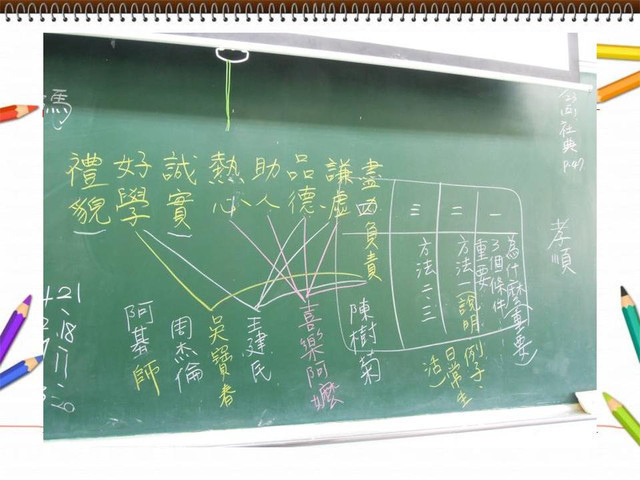 孝順
一
為什麼重要)
3個條件
重要
二
方法一說明
例子:
日常生
活)
三
方法二、三
盡負責
謙虛
品德
助人
熱心
誠實
好學
禮貌
陳樹菊
喜樂阿嬤
王建民
吳寶春
周杰倫
阿基師
21
18